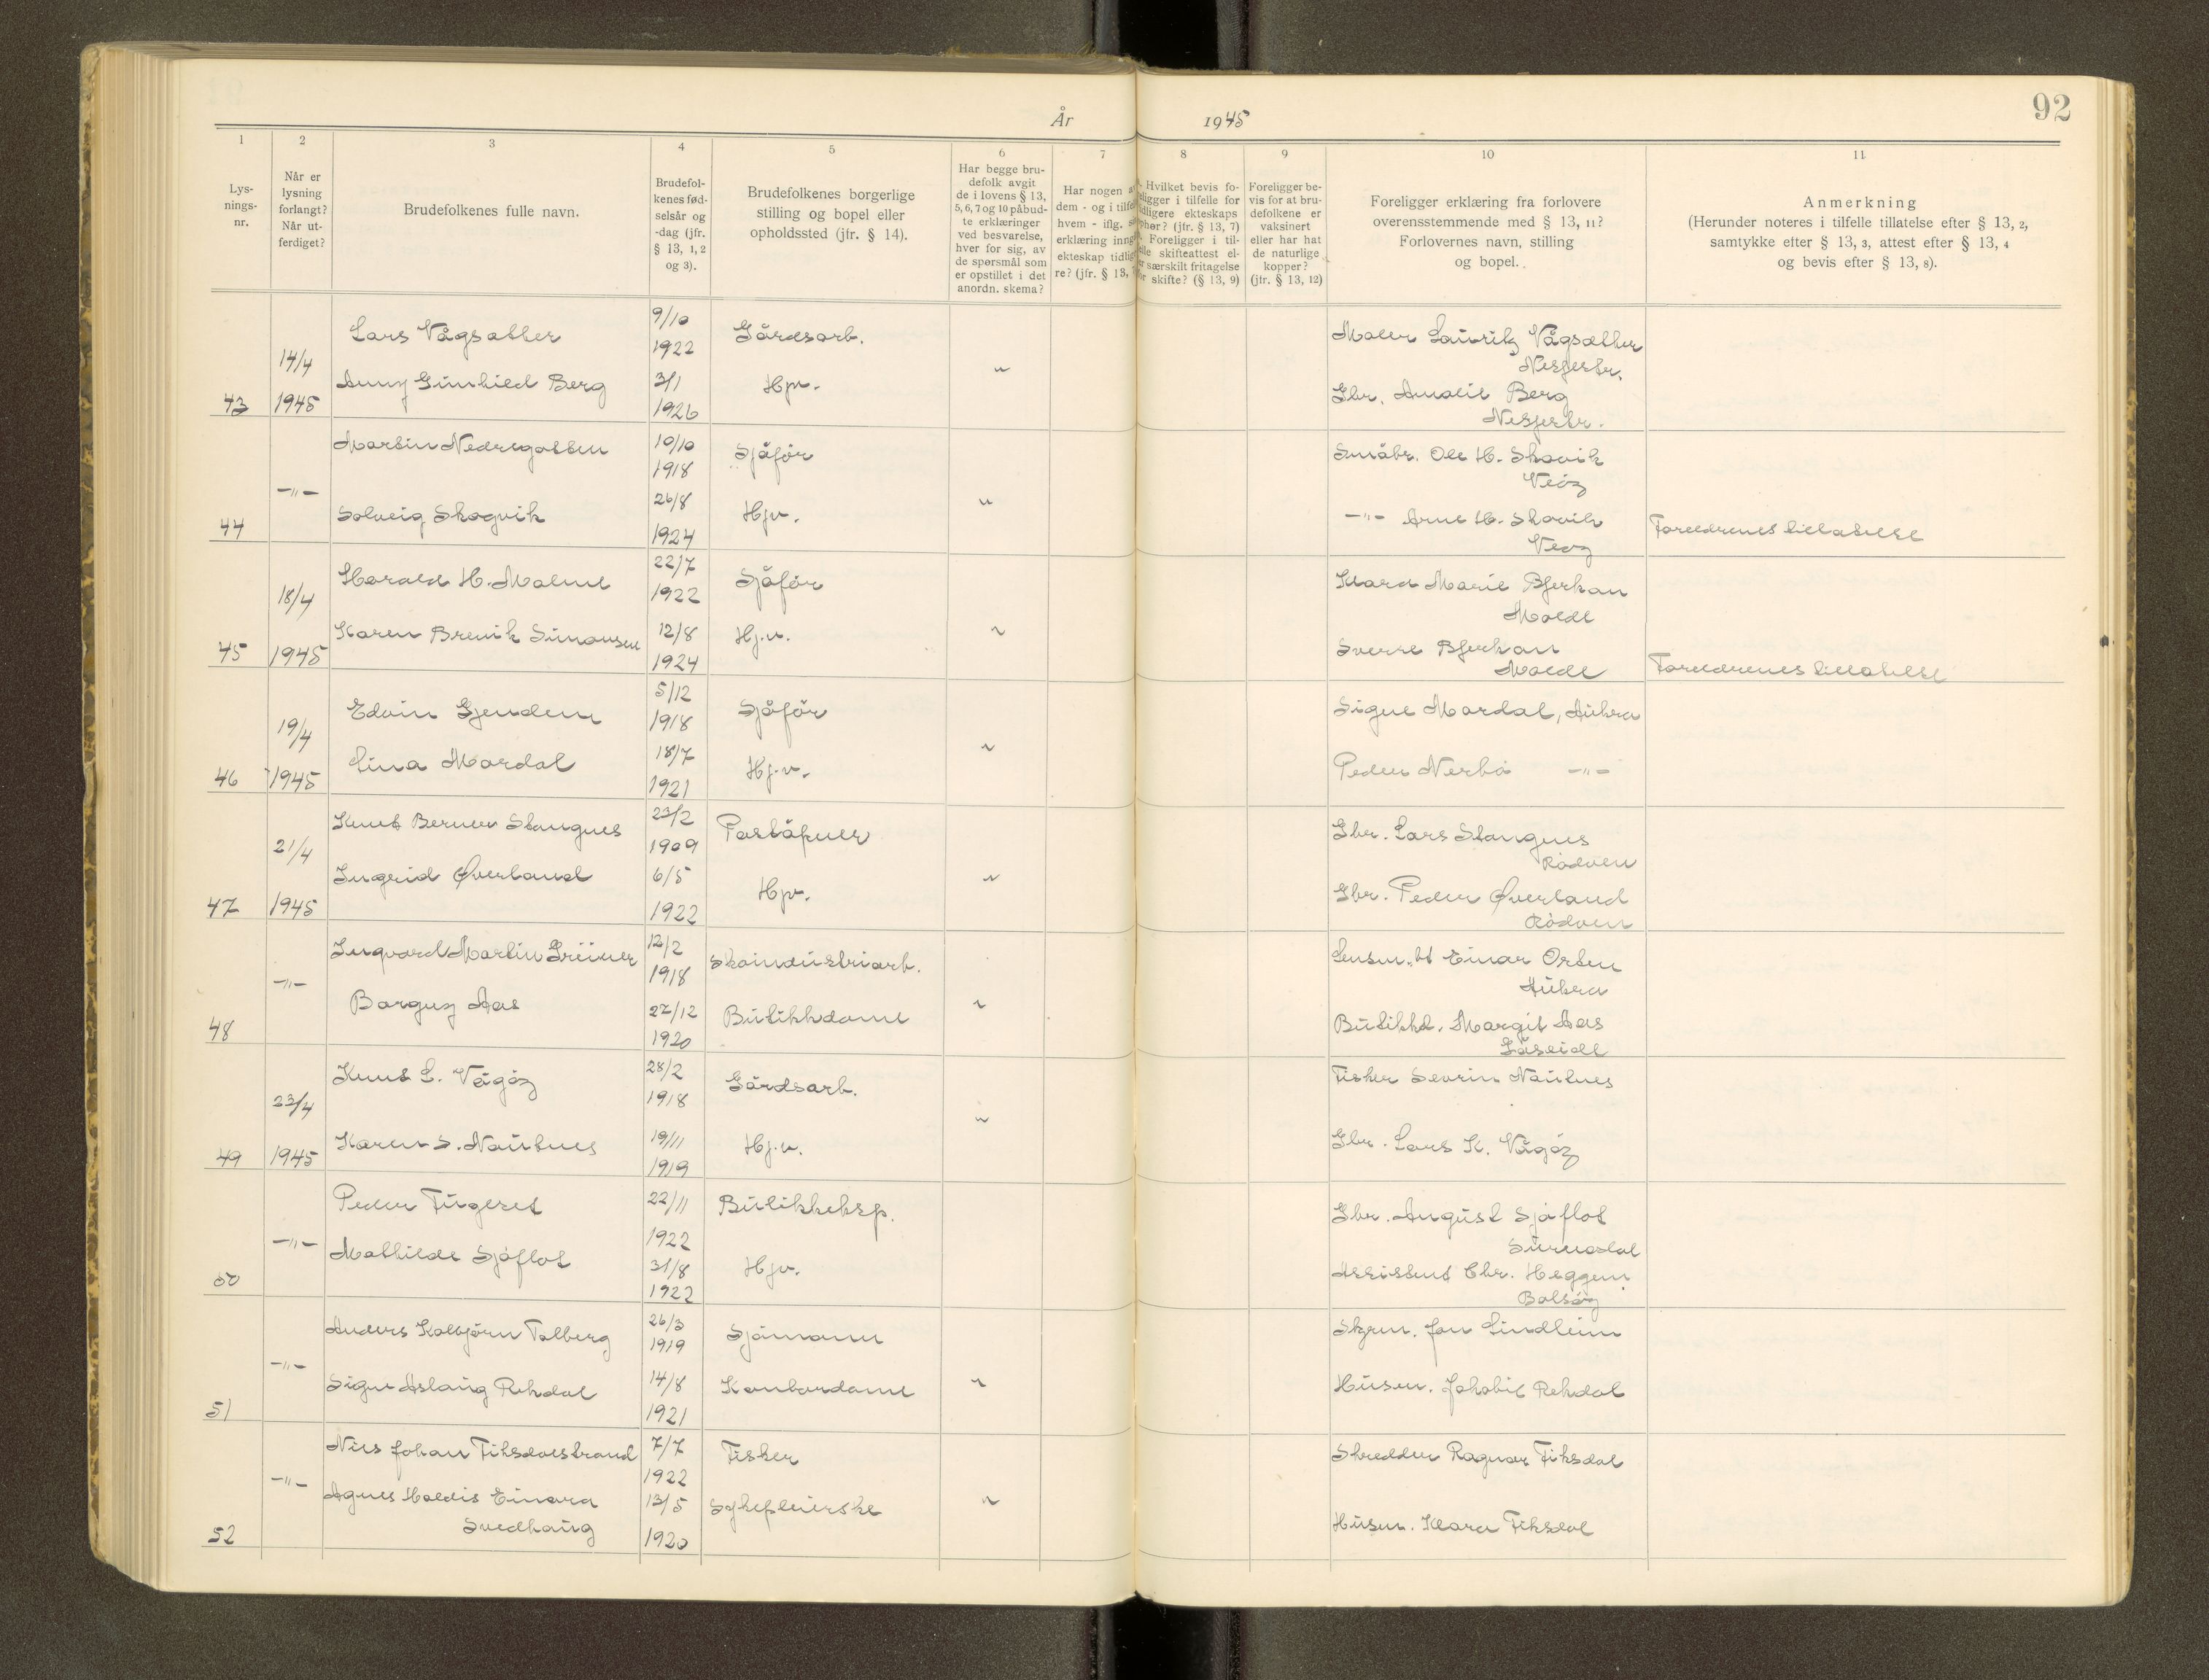 92
År 1945
1 2 3 4 5 6 7 8 9 10 11
Lys-
nings-
nr.
Når er
lysning
forlangt?
Når ut-
ferdiget?
Brudefolkenes fulle navn.
Brudefol-
kenes fød-
selsår og
-dag (jfr.
§ 13, 1, 2
og 3).
Brudefolkenes borgerlige
stilling og bopel eller
opholdssted (jfr. § 14).
Har begge bru-
defolk avgit
de i lovens § 13,
5, 6, 7 og 10 påbud-
te erklæringer
ved besvarelse,
hver for sig, av
de spørsmål som
er opstillet i det
anordn. skema?
Har nogen
dem - og i
hvem - iflg.
erklæring
ekteskap
re? (jfr. § 13,
Hvilket bevis fo-
i tilfelle for
ekteskaps
(jfr. § 13, 7)
Foreligger i til-
skifteattest el-
særskilt fritagelse
skifte? (§ 13, 9)
Foreligger be-
vis for at bru-
defolkene er
vaksinert
eller har hat
de naturlige
kopper?
(jfr. § 13, 12)
Foreligger erklæring fra forlovere
overensstemmende med § 13, 11?
Forlovernes navn, stilling
og bopel.
Anmerkning
(Herunder noteres i tilfelle tillatelse efter § 13, 2,
samtykke efter § 13, 3, attest efter § 13, 4
og bevis efter § 13, 8).
43 14/4 1945
Lars Vågsæther 9/10 1922 Gårdsarb.
Anny Gunhild Berg 3/1 1926 Hpv.
"
Maler Lauritz Vågsæther
Nesjestr.
Gbr. Amalie Berg
Nesjestr.
44 -"-
Martin Nedregotten 10/10 1918 Sjåfør
Solveig Skogvik 26/8 1924 Hjv.
"
Småbr. Ole H. Skovik
Veøy
-"- Arne H. Skovik
Veøy
Foreldrenes tillatelse
45 18/4 1945
Harald H. Malme 22/7 1922 Sjåfør
Karen Brevik Simonsen 12/8 1924 Hj.v.
"
Klara Marie Bjerkan
Molde
Sverre Bjerkan
Molde
Foreldrenes tillatelse
46 19/4 1945
Edvin Gjendem 5/12 1918 Sjåfør
Lina Mordal 18/7 1921 Hj.v.
"
Signe Mordal, Aukra
Peder Nerbø -"-
47 21/4 1945
Knut Berner Stangnes 23/2 1909 Poståpner
Ingrid Øverland 6/5 1922 Hpv.
"
Gbr. Lars Stangnes
Rødven
Gbr. Peder Øverland
Rødven
48 -"-
Ingvard Martin Grüner 12/2 1918 Skoindustriarb.
Borguy Aas 22/12 1920 Butikkdame
"
Lensm.bt Einar Orten
Aukra
Butikkd. Margit Aas
Gåseide
49 23/4 1945
Knut L. Vågøy 28/2 1918 Gårdsarb.
Karen S. Nautnes 19/11 1919 Hj.v.
"
Fisker Sevrin Nautnes
Gbr. Lars K. Vågøy
50 -"-
Peder Tugeret 22/11 1922 Butikkeksp.
Mathilde Sjøflot 31/8 1922 Hjv.
Gbr. August Sjøflot
Surnadal
Assistent Chr. Heggem
Bolsøy
51 -"-
Anders Kolbjørn Talberg 26/3 1919 Sjømann
Signe Aslaug Rekdal 14/8 1921 Kontordame
"
Skrm. Jon Lindheim
Husm. Jakobie Rekdal
52 -"-
Nils Johan Fiksdalstrand 7/7 1922 Fisker
Agnes Haldis Einara
Svedhaug 13/5 1920 Sykepleierske
"
Skredder Ragnar Fiksdal
Husm. Klara Fiksdal